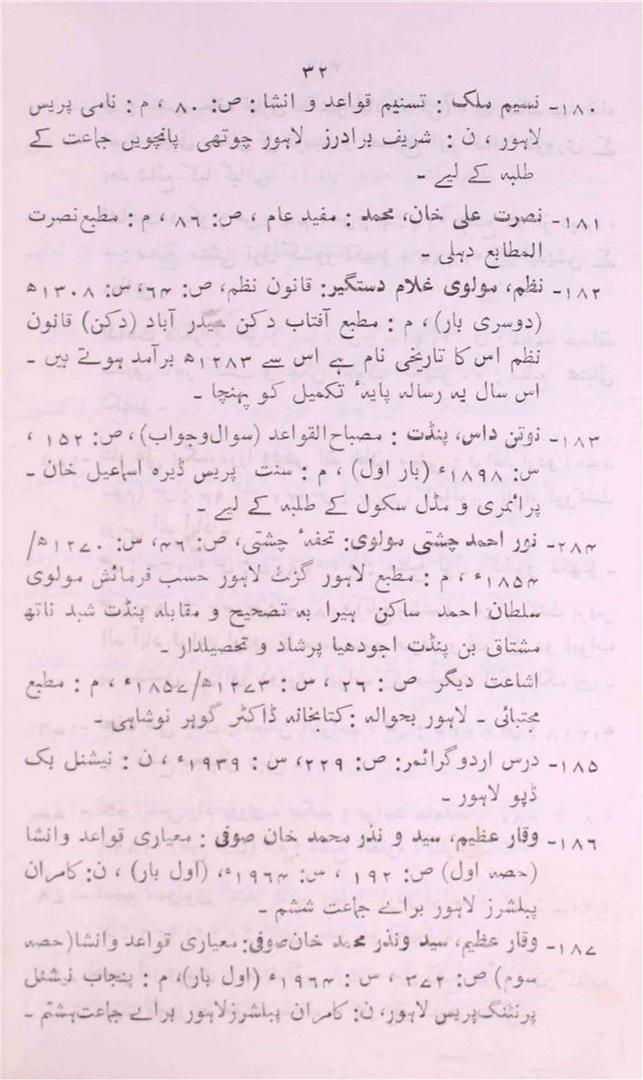 ۳۲
۱۸۰- نسیم ملک : تسنیم قواعد و انشا : ص: ۸۰ ، م : نامی پریس
لاہور ، ن : شریف برادرز لاہور چوتھی پانچویں جماعت کے
طلبہ کے لیے ۔
۱۸۱- نصرت علی خان، محمد : مفید عام ، ص: ۸۶ ، م : مطبع نصرت
المطابع دہلی ۔
۱۸۲- نظم، مولوی غلام دستگیر: قانون نظم، ص: ۶۴، س: ۱۳۰۸ھ
(دوسری بار) ، م : مطبع آفتاب دکن حیدر آباد (دکن) قانون
نظم اس کا تاریخی نام ہے اس سے ۱۲۸۳ھ برآمد ہوتے ہیں ۔
اس سال یہ رسالہ پایہٴ تکمیل کو پہنچا ۔
۱۸۳- نوتن داس، پنڈت : مصباح القواعد (سوال وجواب) ، ص: ۱۵۲ ،
س: ۱۸۹۸ء (بار اول) ، م : سنت پریس ڈیرہ اساعیل خان ۔
پرائمری و مڈل سکول کے طلبہ کے لیے ۔
۲۸۴- نور احمد چشتی مولوی: تحفہٴ چشتی، ص: ۴۶، س: ۱۲۷۰ھ/
۱۸۵۴ء ، م : مطبع لاہور گزٹ لاہور حسب فرمائش مولوی
سلطان احمد ساکن ہیرا بہ تصحیح و مقابلہ پنڈت شبد ناتھ
مشتاق بن پنڈت اجودھیا پرشاد و تحصیلدار ۔
اشاعت دیگر ص : ۲۶ ، س : ۱۲۷۳ھ/۱۸۵۷ء ، م : مطبع
مجتبائی ۔ لاہور بحوالہ : کتابخانہ ڈاکٹر گوہر نوشاہی ۔
۱۸۵- درس اردو گرائمر: ص: ۲۲۹، س : ۱۹۳۹ء ، ن : نیشنل بک
ڈپو لاہور ۔
۱۸۶- وقار عظیم، سید و نذر محمد خان صوفی : معیاری قواعد وانشا
(حصہ اول) ص: ۱۹۲ ، س: ۱۹۶۴ء، (اول بار) ، ن: کامران
پبلشرز لاہور براے جماعت ششم ۔
۱۸۷- وقار عظیم، سید ونذر محمد خان صوفی: معیاری قواعد وانشا(حصہ
سوم) ص: ۳۷۲ ، س : ۱۹۶۴ء (اول بار)، م : پنجاب نیشنل
پرنٹنگ پریس لاہور، ن: کامران پبلشرز لاہور براے جماعت ہشتم ۔